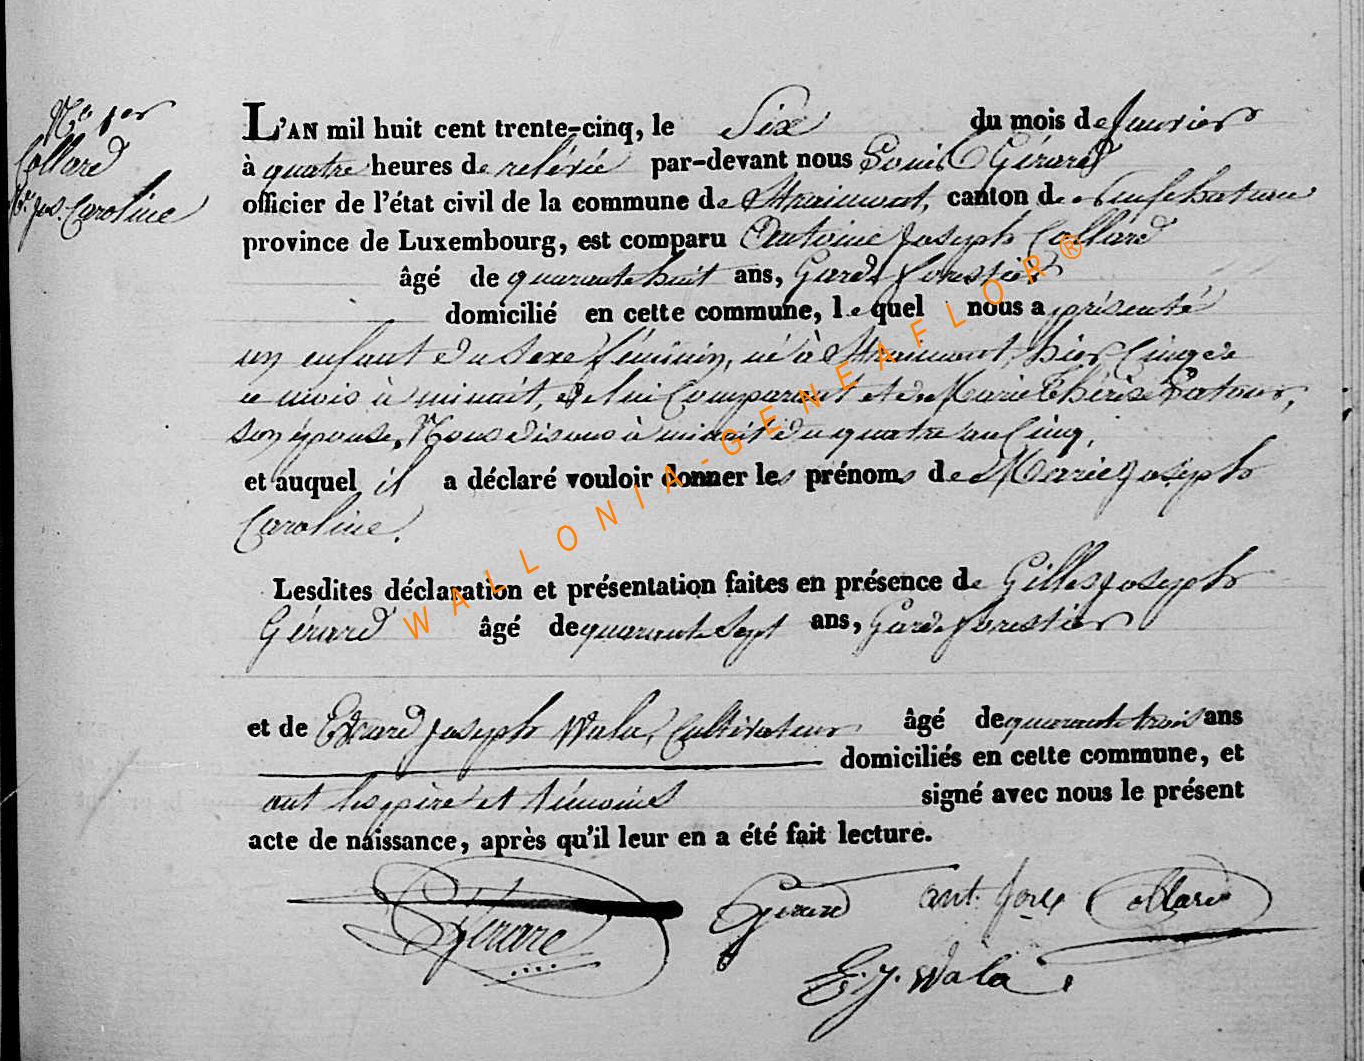 N.° 1er
Collard
Me. Jos. Caroline
L'AN mil huit cent trente-cinq, le Six du mois de Janvier
à quatre heures de relévée par-devant nous Louis Gérard
officier de l'état civil de la commune de Straimont, canton de Neufchateau
province de Luxembourg, est comparu Antoine Joseph Collard
âgé de quarante huit ans, Garde forestier
domicilié en cette commune, lequel nous a présenté
un enfant du sexe féminin, né à Straimont, hier Cinq de
ce mois à minuit, de lui Comparant et de Marie Thérèse Latour,
son épouse, Nous disons à minuit du quatre au Cinq,
et auquel il a déclaré vouloir donner les prénoms de Marie Joseph
Caroline.
Lesdites déclaration et présentation faites en présence de Gilles Joseph
Gérard âgé de quarante Sept ans, Garde forestier
et de Evrard Joseph Wala, Cultivateur âgé de quarante trois ans
domiciliés en cette commune, et
ont les père et témoins signé avec nous le présent
acte de naissance, après qu'il leur en a été fait lecture.
Gérard Gérard ant. Joseph Collard
E. J. Wala
WALLONIA-GENEAFLOR®